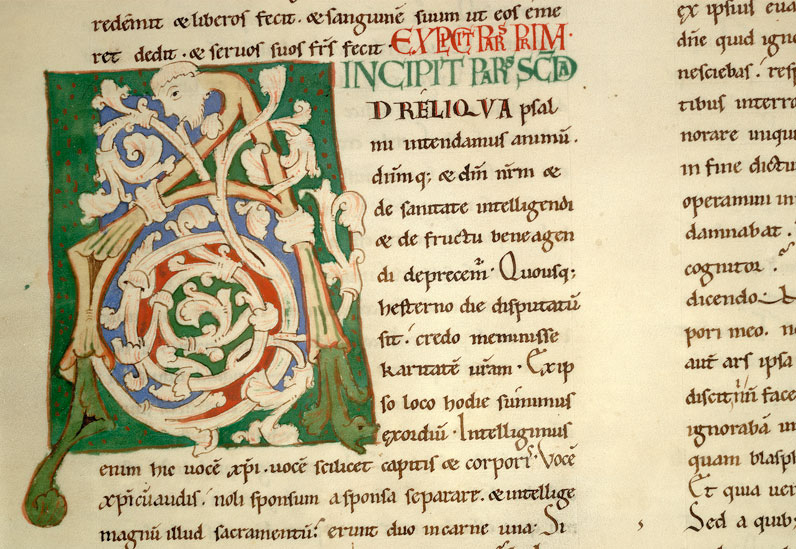 redemit & liberos fecit · & sanguinē suum ut eos eme
ret dedit · & seruos suos fr̄s fecit · EXPLICIT PARS PRIMA·
INCIPIT PARS SCD̄A
AD RELIQUA psal
mi intendamus animū·
dūmq; & dn̄m nr̄m &
de sanitate intelligendi
& de fructu bene agen
di deprecem̄· Quousq;
hesterno die disputatū
sit· credo meminisse
karitatē uram̄· Exip
so loco hodie sumimus
exordiū· Intelligimus
enim hic uocē xp̄i· uocē scilicet capitis & corpor̄· Vocē
xp̄i cū audis· noli sponsum a sponsa separare· & intellige
magnū illud sacramentū· erunt duo in carne una· Si
ex ipsius eua
dn̄e quid igno
nesciebas· resp
tibus interro
norare iniqui
in fine dictu
operamini in
damnabat·
cognitor·
dicendo·
pori meo· no
aut̄ ars ipsa
face
ignorabā in
quam blasph
Et quia ver
Sed a quib;